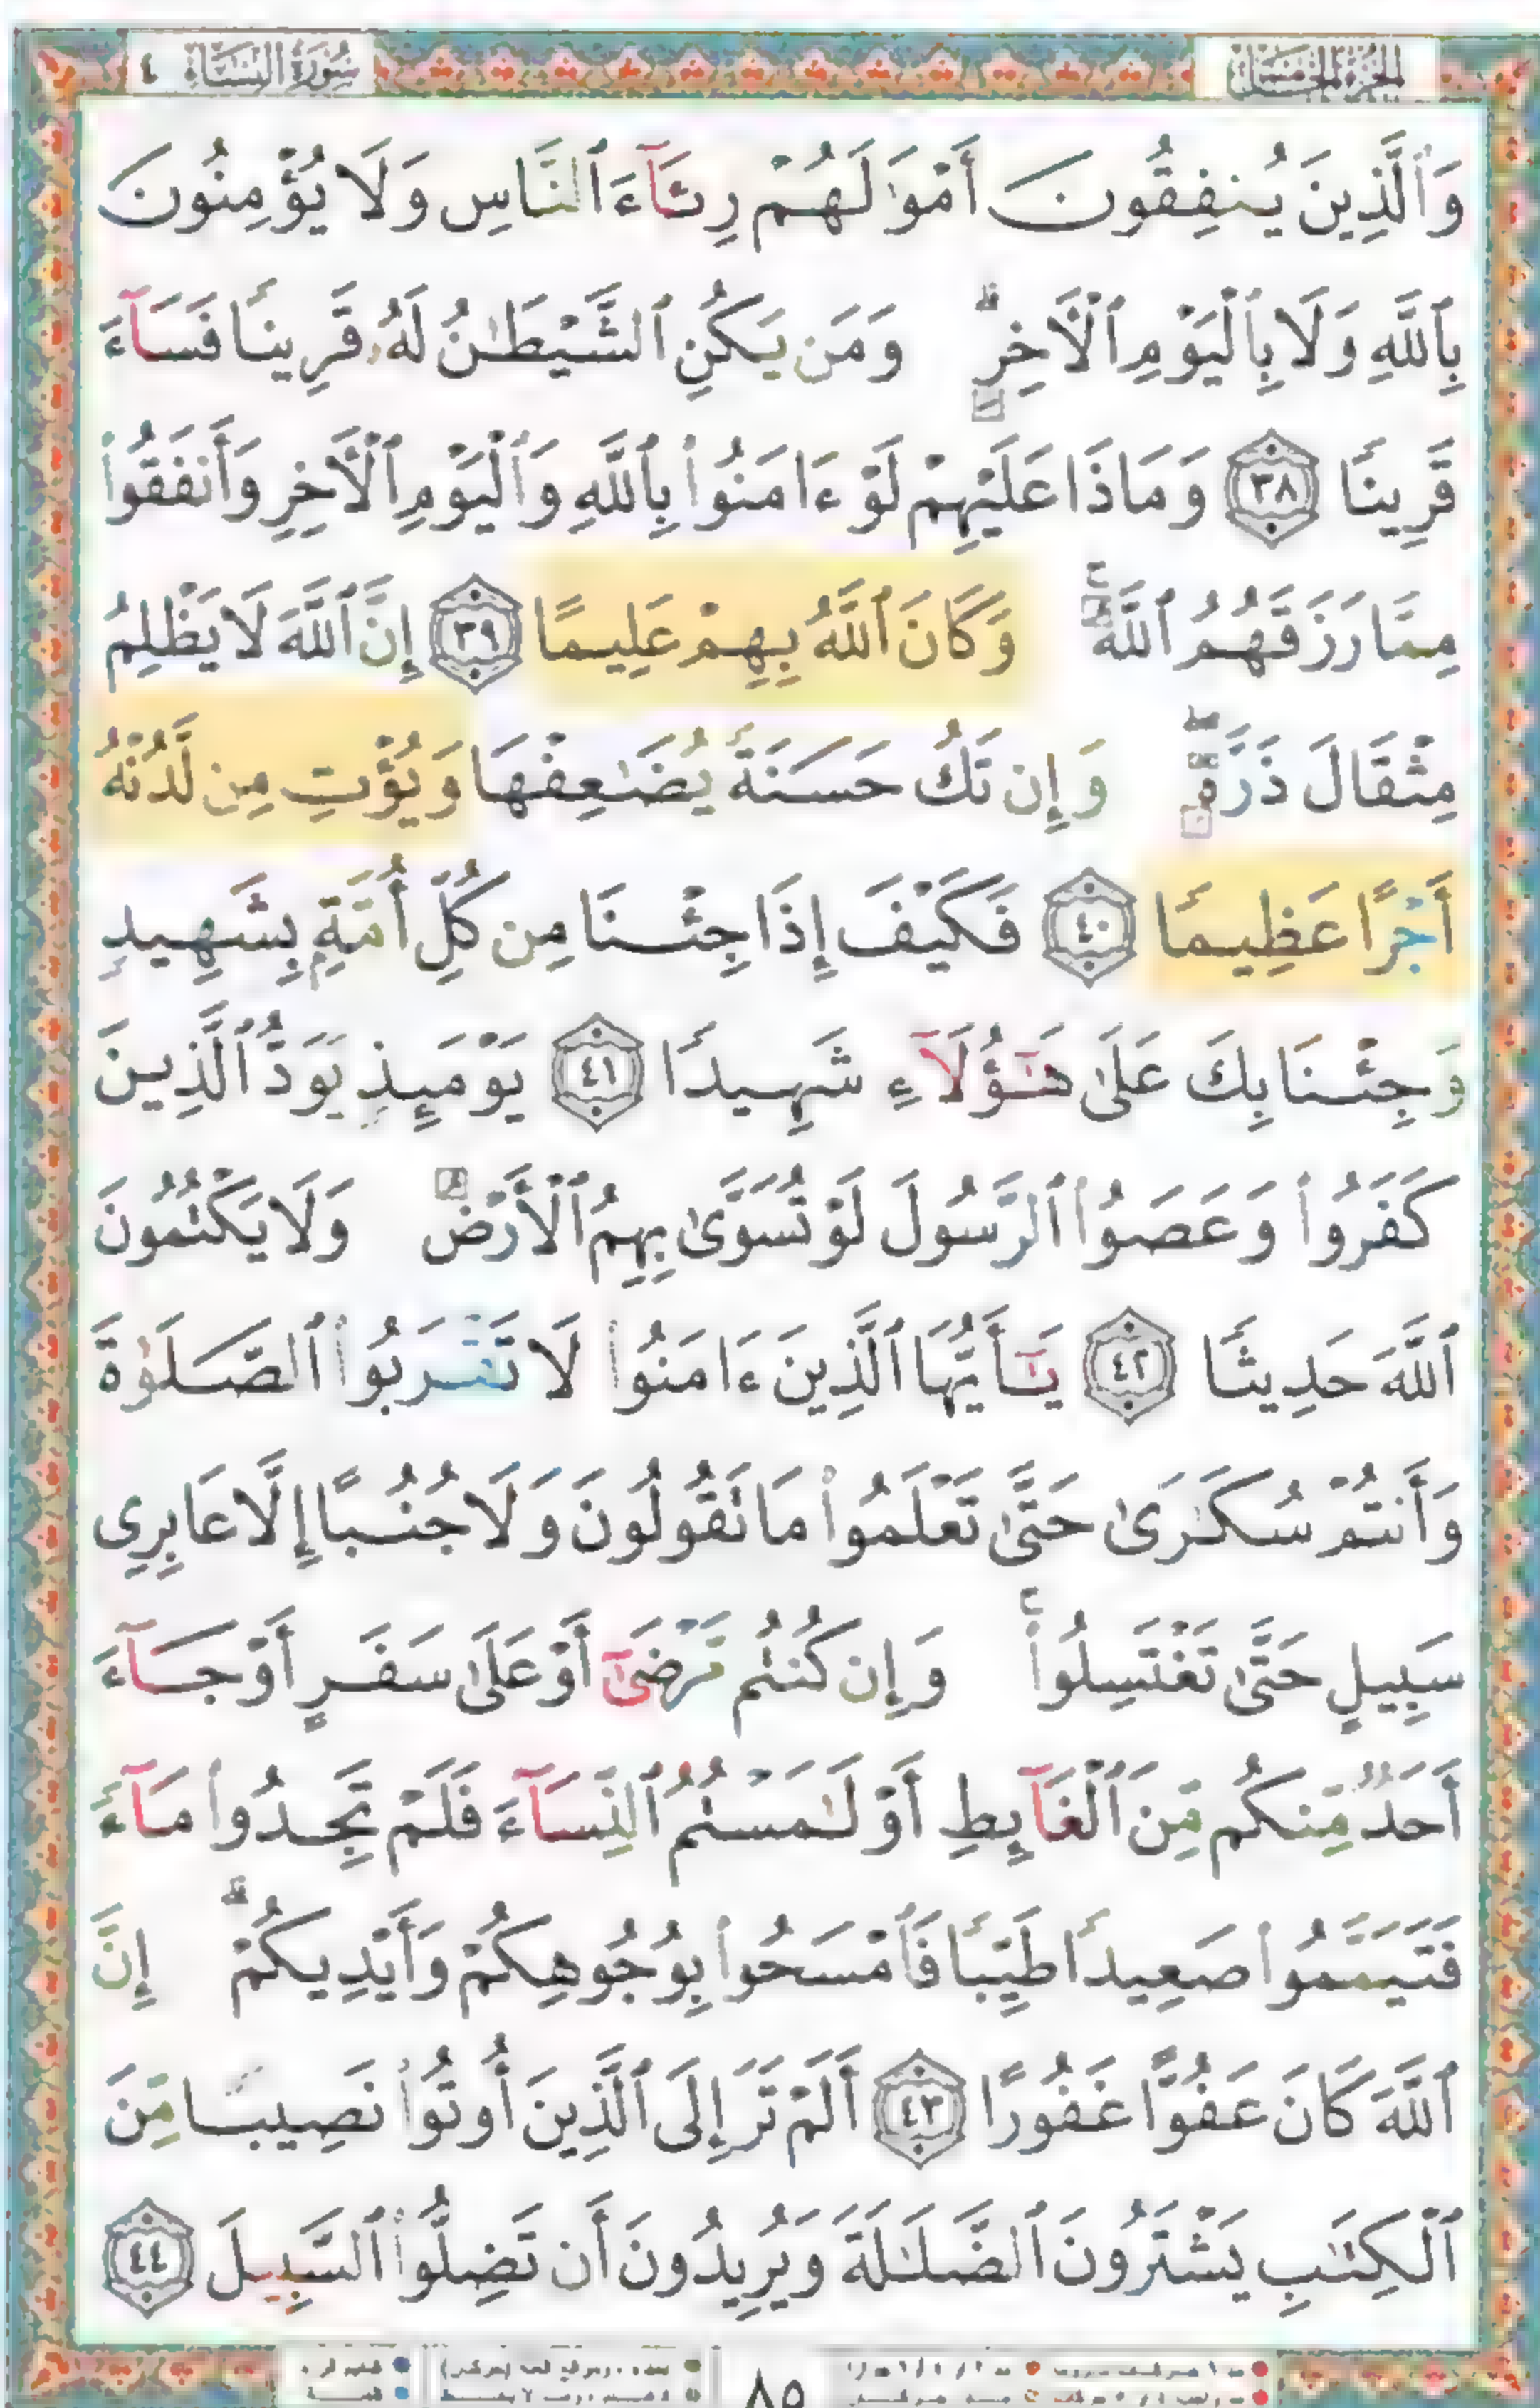 سُورَةُ النِّسَاءِ ٤
الجُزْءُ الخَامِسُ
وَٱلَّذِينَ يُنفِقُونَ أَمْوَٰلَهُمْ رِئَآءَ ٱلنَّاسِ وَلَا يُؤْمِنُونَ
بِٱللَّهِ وَلَا بِٱلْيَوْمِ ٱلْأَخِرِ ۗ وَمَن يَكُنِ ٱلشَّيْطَٰنُ لَهُۥ قَرِينًا فَسَآءَ
قَرِينًا ٣٨ وَمَاذَا عَلَيْهِمْ لَوْ ءَامَنُوا۟ بِٱللَّهِ وَٱلْيَوْمِ ٱلْأَخِرِ وَأَنفَقُوا۟
مِمَّا رَزَقَهُمُ ٱللَّهُ ۚ وَكَانَ ٱللَّهُ بِهِمْ عَلِيمًا ٣٩ إِنَّ ٱللَّهَ لَا يَظْلِمُ
مِثْقَالَ ذَرَّةٍ ۖ وَإِن تَكُ حَسَنَةً يُضَٰعِفْهَا وَيُؤْتِ مِن لَّدُنْهُ
أَجْرًا عَظِيمًا ٤٠ فَكَيْفَ إِذَا جِئْنَا مِن كُلِّ أُمَّةٍۭ بِشَهِيدٍ
وَجِئْنَا بِكَ عَلَىٰ هَٰٓؤُلَآءِ شَهِيدًا ٤١ يَوْمَئِذٍ يَوَدُّ ٱلَّذِينَ
كَفَرُوا۟ وَعَصَوُا۟ ٱلرَّسُولَ لَوْ تُسَوَّىٰ بِهِمُ ٱلْأَرْضُ وَلَا يَكْتُمُونَ
ٱللَّهَ حَدِيثًا ٤٢ يَٰٓأَيُّهَا ٱلَّذِينَ ءَامَنُوا۟ لَا تَقْرَبُوا۟ ٱلصَّلَوٰةَ
وَأَنتُمْ سُكَٰرَىٰ حَتَّىٰ تَعْلَمُوا۟ مَا تَقُولُونَ وَلَا جُنُبًا إِلَّا عَابِرِى
سَبِيلٍ حَتَّىٰ تَغْتَسِلُوا۟ ۚ وَإِن كُنتُم مَّرْضَىٰٓ أَوْ عَلَىٰ سَفَرٍ أَوْ جَآءَ
أَحَدٌ مِّنكُم مِّنَ ٱلْغَآئِطِ أَوْ لَٰمَسْتُمُ ٱلنِّسَآءَ فَلَمْ تَجِدُوا۟ مَآءً
فَتَيَمَّمُوا۟ صَعِيدًا طَيِّبًا فَٱمْسَحُوا۟ بِوُجُوهِكُمْ وَأَيْدِيكُمْ ۗ إِنَّ
ٱللَّهَ كَانَ عَفُوًّا غَفُورًا ٤٣ أَلَمْ تَرَ إِلَى ٱلَّذِينَ أُوتُوا۟ نَصِيبًا مِّنَ
ٱلْكِتَٰبِ يَشْتَرُونَ ٱلضَّلَٰلَةَ وَيُرِيدُونَ أَن تَضِلُّوا۟ ٱلسَّبِيلَ ٤٤
٨٥